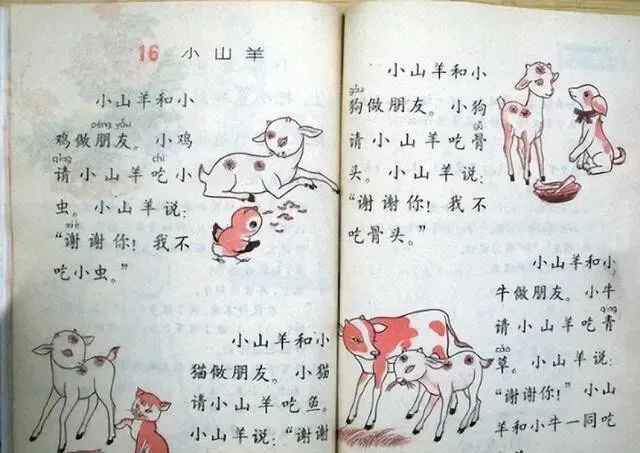 16 小山羊
小山羊和小
péng yǒu
鸡做朋友。小鸡
qǐng chī
请小山羊吃小
虫。小山羊说：
xiè
“谢谢你！我不
吃小虫。”
小山羊和小
猫做朋友。小猫
请小山羊吃鱼。
小山羊说：“谢谢
小山羊和小
gǒu
狗做朋友。小狗
gǔ
请小山羊吃骨
头。小山羊说：
“谢谢你！我不
吃骨头。”
小山羊和小
牛做朋友。小牛
qīng
请小山羊吃青
cǎo
草。小山羊说：
“谢谢你！”小山
羊和小牛一同吃